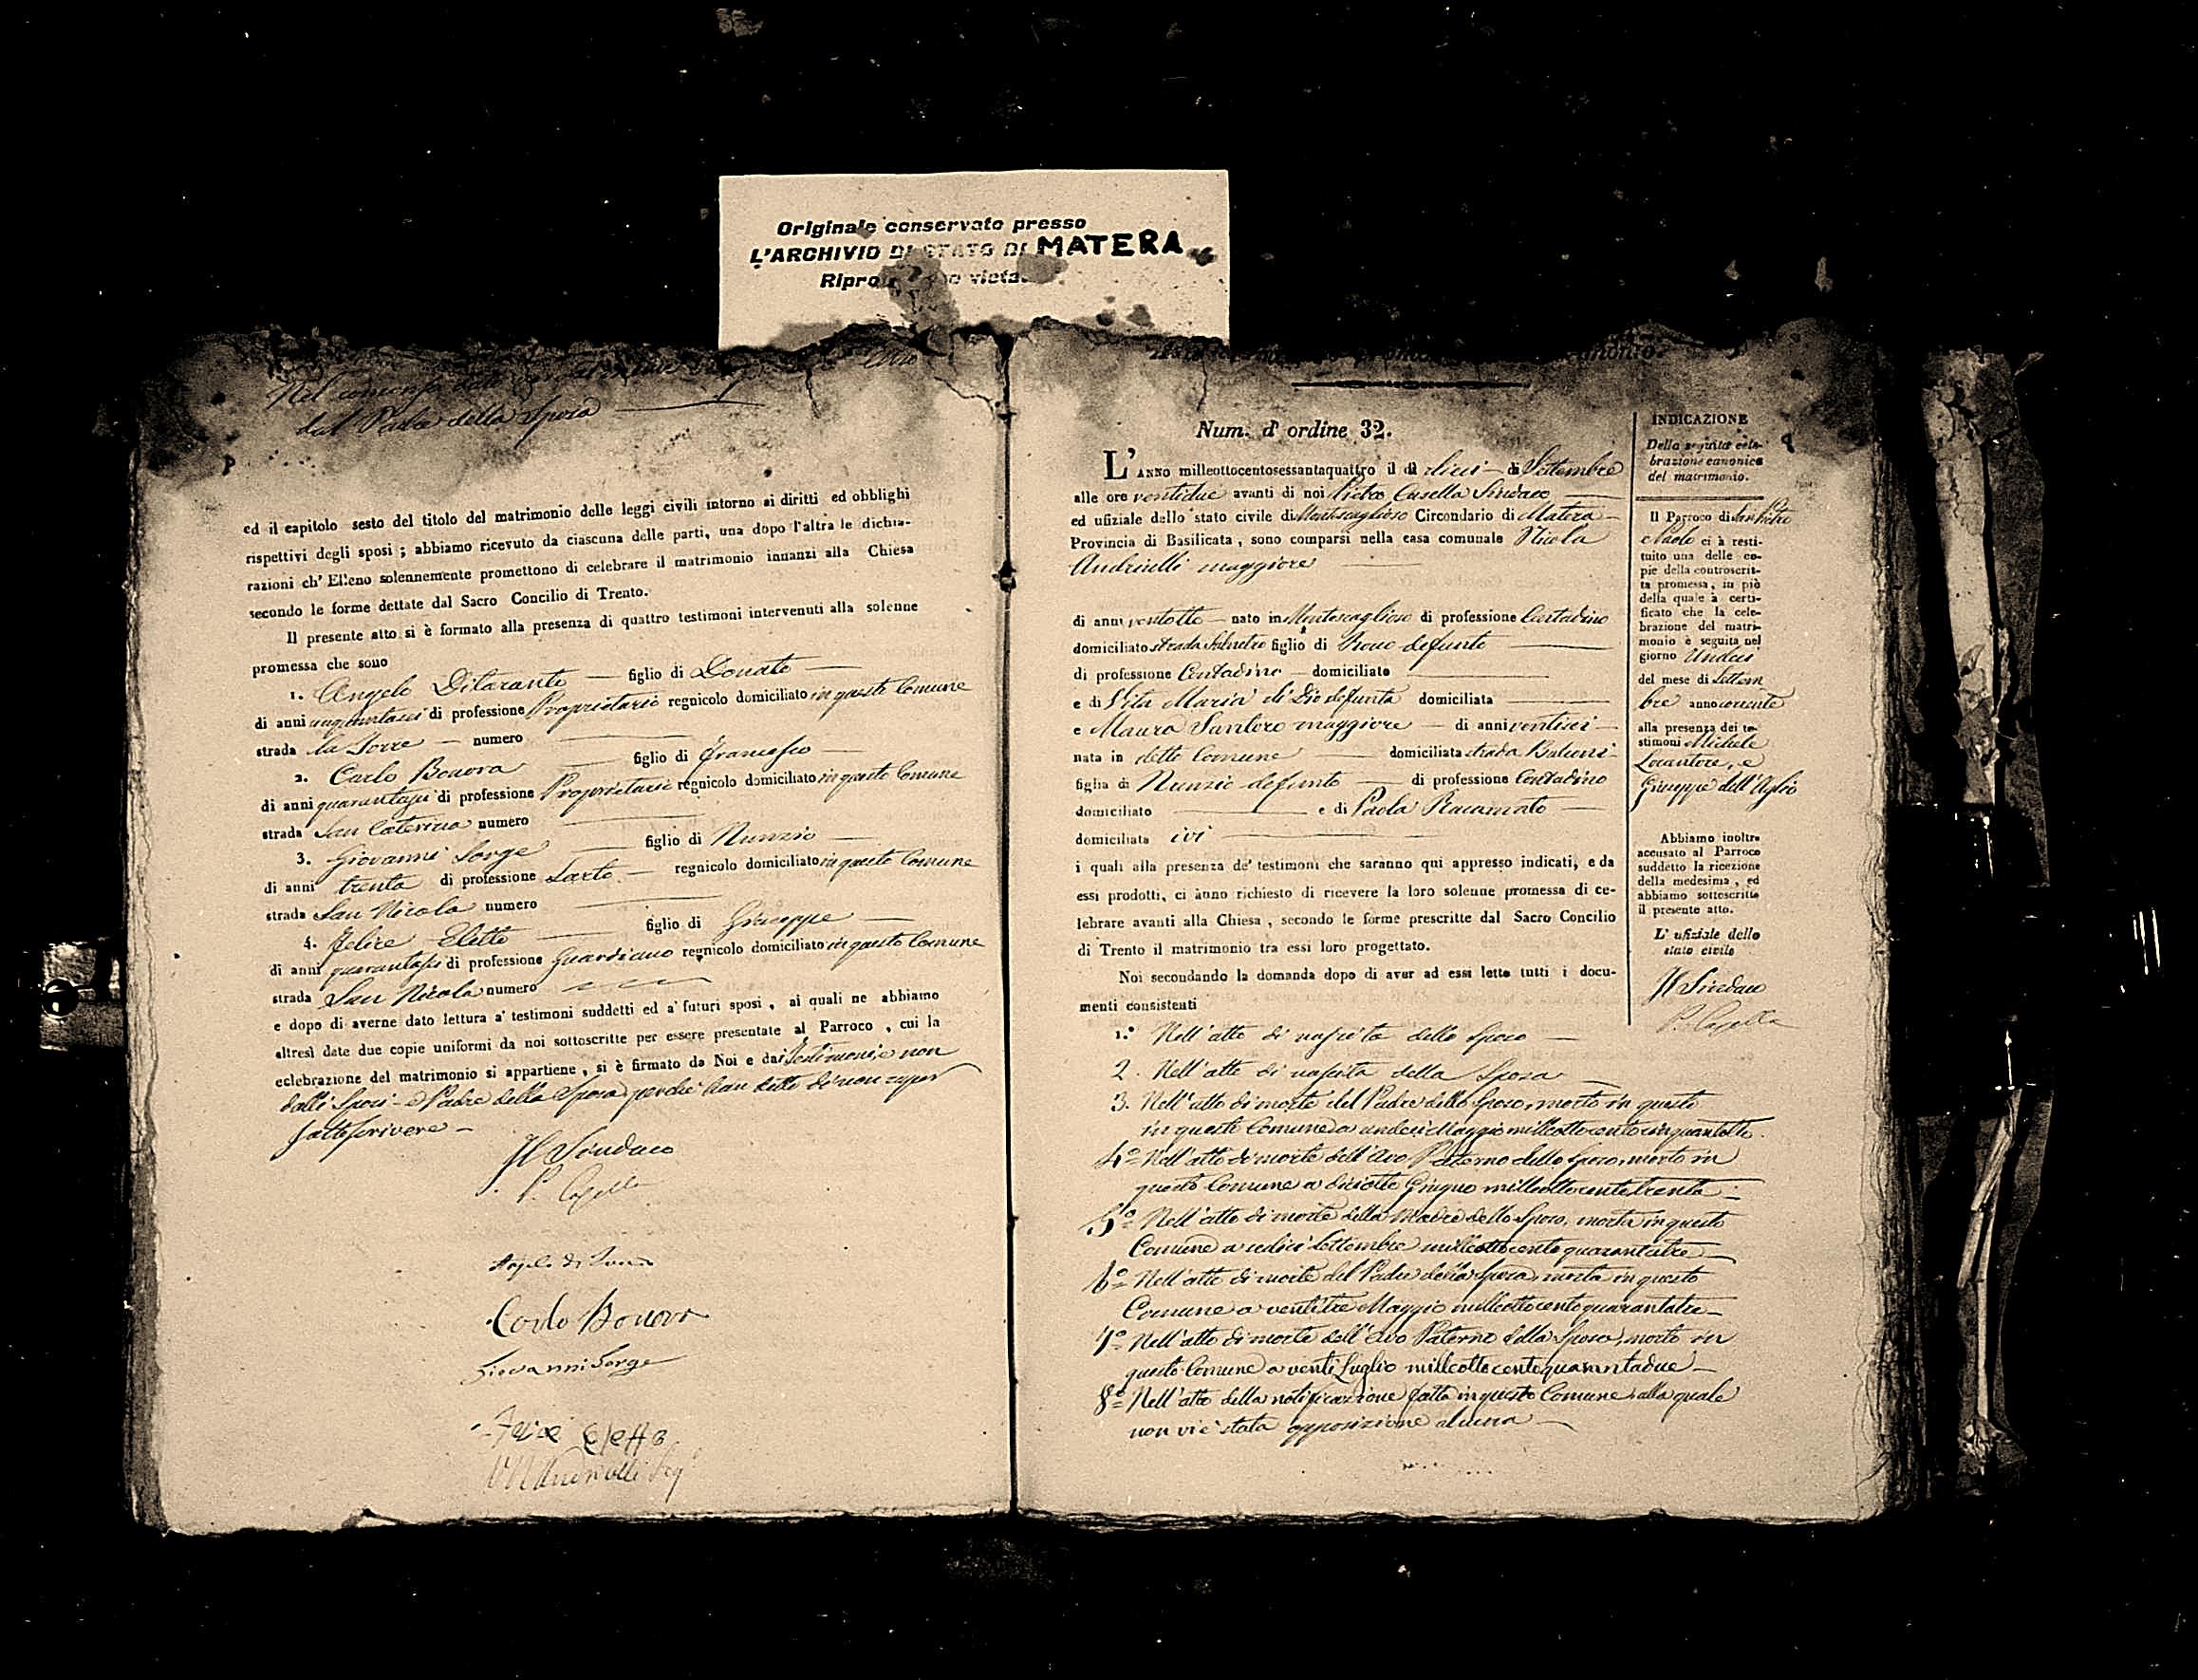 Originale conservato presso
L'ARCHIVIO DI STATO DI MATERA
Nel consenso dato
dal Padre della Sposa
ed il capitolo sesto del titolo del matrimonio delle leggi civili intorno ai diritti ed obblighi
rispettivi degli sposi ; abbiamo ricevuto da ciascuna delle parti, una dopo l'altra le dichia-
razioni ch' Elleno solennemente promettono di celebrare il matrimonio innanzi alla Chiesa
secondo le forme dettate dal Sacro Concilio di Trento.
Il presente atto si è formato alla presenza di quattro testimoni intervenuti alla solenne
promessa che sono
1. Angelo Ditaranto figlio di Donato
di anni di professione Proprietario regnicolo domiciliato in questo Comune
strada la Torre numero
2. Carlo Bonora figlio di Francesco
di anni quarantasei di professione Proprietario regnicolo domiciliato in questo Comune
strada San Caterina numero
3. Giovanni Sorge figlio di Nunzio
di anni trenta di professione Sarto regnicolo domiciliato in questo Comune
strada San Nicola numero
4. Felice Eletto figlio di Giuseppe
di anni quarantasei di professione Guardiano regnicolo domiciliato in questo Comune
strada San Nicola numero
e dopo di averne dato lettura a' testimoni suddetti ed a' futuri sposi , ai quali ne abbiamo
altresì date due copie uniformi da noi sottoscritte per essere presentate al Parroco , cui la
celebrazione del matrimonio si appartiene , si è firmato da Noi e dai Testimoni e non
dalli Sposi e Padre della Sposa perchè han detto di non saper
sottoscrivere
Il Sindaco
Carlo Bonora
Giovanni Sorge
Felice Eletto
Num. d' ordine 32.
L'ANNO milleottocentosessantaquattro il dì dieci di Settembre
alle ore ventidue avanti di noi Pietro Casella Sindaco
ed ufiziale dello stato civile di Montescaglioso Circondario di Matera
Provincia di Basilicata , sono comparsi nella casa comunale Nicola
Andriulli maggiore
di anni ventotto nato in Montescaglioso di professione Contadino
domiciliato strada figlio di defunto
di professione Contadino domiciliato
e di Vita Maria di Dio defunta domiciliata
e Maura Santoro maggiore di anni ventisei
nata in detto Comune domiciliata strada
figlia di Nunzio defunto di professione Contadino
domiciliato e di Paola Racamato
domiciliata ivi
i quali alla presenza de' testimoni che saranno qui appresso indicati, e da
essi prodotti, ci ànno richiesto di ricevere la loro solenne promessa di ce-
lebrare avanti alla Chiesa , secondo le forme prescritte dal Sacro Concilio
di Trento il matrimonio tra essi loro progettato.
Noi secondando la domanda dopo di aver ad essi letto tutti i docu-
menti consistenti
1.° Nell'atto di nascita dello Sposo
2. Nell'atto di nascita della Sposa
3. Nell'atto di morte del Padre dello Sposo, morto in questo
in questo Comune a undeci Maggio millottocentocinquantotto.
4° Nell'atto di morte dell'Avo Paterno dello Sposo, morto in
questo Comune a diciotto Giugno millottocentotrenta
5° Nell'atto di morte della Madre dello Sposo, morta in questo
Comune a sedici Settembre millottocentoquarantatre
6° Nell'atto di morte del Padre della Sposa, morto in questo
Comune a ventitre Maggio millottocentoquarantatre
7° Nell'atto di morte dell'Avo Paterno della Sposa, morto in
questo Comune a venti Luglio millottocentoquarantadue
8° Nell'atto della notificazione fatta in questo Comune, alla quale
non vi è stata opposizione alcuna
INDICAZIONE
Della seguita cele-
brazione canonica
del matrimonio.
Il Parroco di San Pietro
e Paolo ci à resti-
tuito una delle co-
pie della controscrit-
ta promessa, in piè
della quale à certi-
ficato che la cele-
brazione del matri-
monio è seguita nel
giorno Undeci
del mese di Settem
bre anno corrente
alla presenza dei te-
stimoni Michele
Locantore, e
Giuseppe dell'Aglio
Abbiamo inoltre
accusato al Parroco
suddetto la ricezione
della medesima , ed
abbiamo sottoscritto
il presente atto.
L' ufiziale dello
stato civile
Il Sindaco
P. Casella